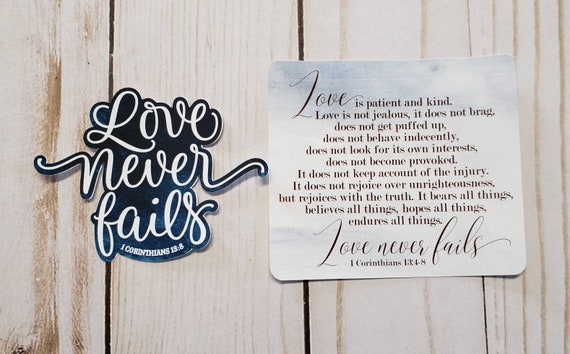 Love
never
fails
1 CORINTHIANS 13:8
Love is patient and kind.
Love is not jealous, it does not brag,
does not get puffed up,
does not behave indecently,
does not look for its own interests,
does not become provoked.
It does not keep account of the injury.
It does not rejoice over unrighteousness,
but rejoices with the truth. It bears all things,
believes all things, hopes all things,
endures all things.
Love never fails
1 Corinthians 13:4-8